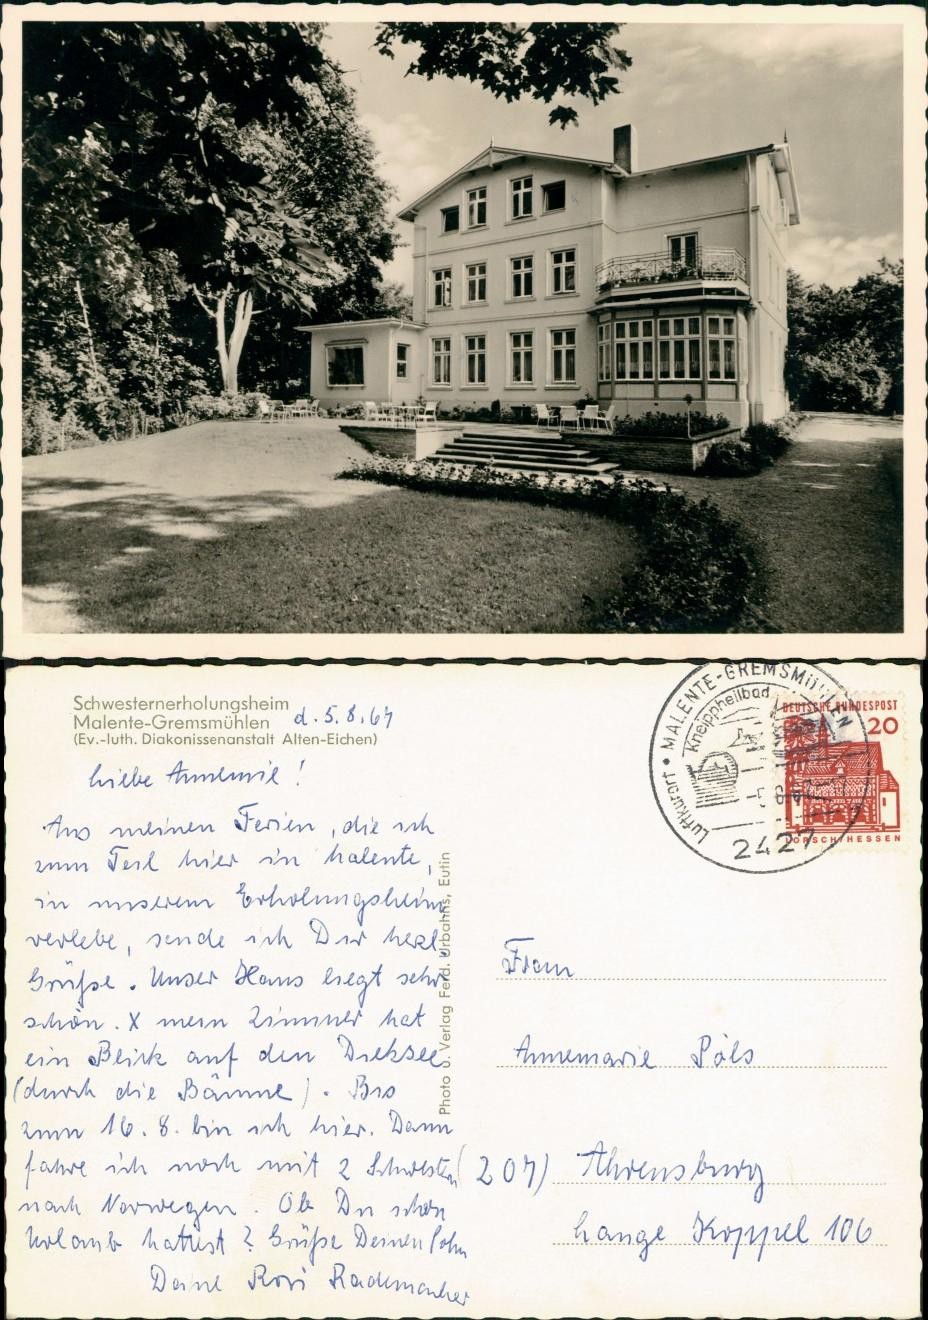 Schwesternerholungsheim
Malente-Gremsmühlen
(Ev.-luth. Diakonissenanstalt Alten-Eichen)
d. 5.8.67
Liebe Annemarie!
Aus meinen Ferien, die ich
zum Teil hier in Malente,
in unserem Erholungsheim
verlebe, sende ich Dir herzl.
Grüße. Unser Haus liegt sehr
schön. X mein Zimmer hat
ein Blick auf den Dieksee
(durch die Bäume). Bis
zum 16.8. bin ich hier. Dann
fahre ich noch mit 2 Schwestern
nach Norwegen. Ob Du schon
Urlaub hattest? Grüße Deinen Sohn
Deine Rosi Rademacher
Photo u. Verlag Ferd. Urbahns, Eutin
Luftkurort • MALENTE-GREMSMÜHLEN
Kneippheilbad
2427
DEUTSCHE BUNDESPOST
20
LORSCH/HESSEN
Frau
Annemarie Pöls
(207) Ahrensburg
Lange Koppel 106